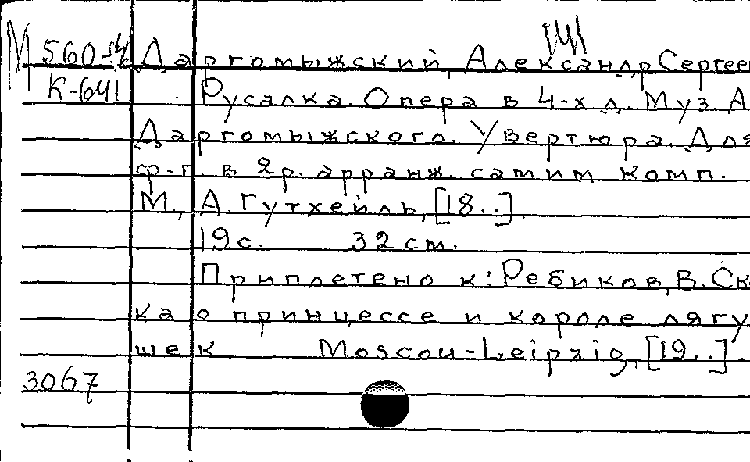 М 560-14 Даргомыжский, Александр Сергеев
К-641 Русалка. Опера в 4-х д. Муз. А
Даргомыжского. Увертюра. Для
ф-п. в 2 р. арранж. самим комп.
М., А. Гутхейль, [18..].
19 с. 32 см.
Приплетено к: Ребиков, В. Ск
ка о принцессе и короле лягу
шек Moscou-Leipzig, [19..]
3067